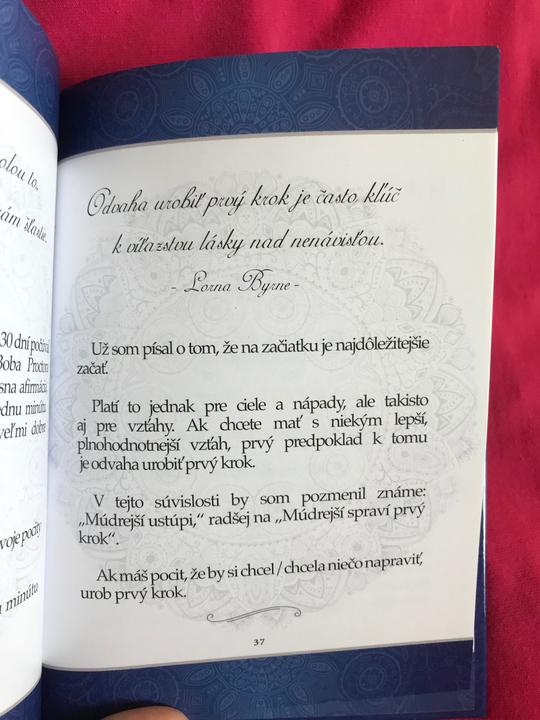 olou to.
ám šťastie.
30 dní počúval
Boba Proctora
sna afirmácia
ednu minútu
veľmi dobre
voje pocity
minútu
Odvaha urobiť prvý krok je často kľúč
k víťazstvu lásky nad nenávisťou.
- Lorna Byrne -
Už som písal o tom, že na začiatku je najdôležitejšie
začať.
Platí to jednak pre ciele a nápady, ale takisto
aj pre vzťahy. Ak chcete mať s niekým lepší,
plnohodnotnejší vzťah, prvý predpoklad k tomu
je odvaha urobiť prvý krok.
V tejto súvislosti by som pozmenil známe:
„Múdrejší ustúpi,“ radšej na „Múdrejší spraví prvý
krok“.
Ak máš pocit, že by si chcel / chcela niečo napraviť,
urob prvý krok.
37